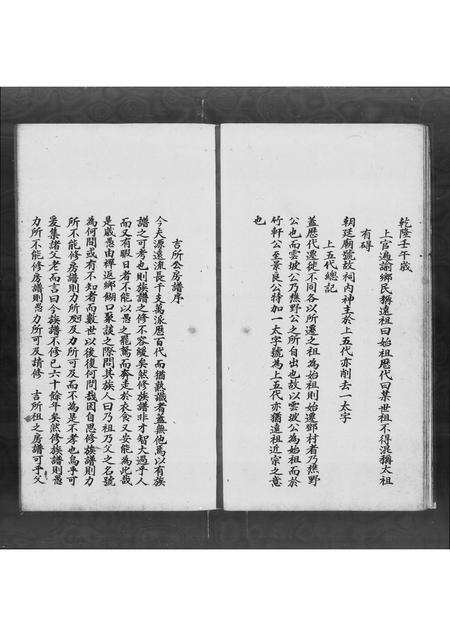 乾隆壬午歲
上官遍諭鄉民稱遠祖曰始祖歷代曰某世祖不得混稱太祖
有碍
朝廷廟號故祠內神主於上五代亦削去一太字
上五代總記
蓋歷代遷徙不同各以所遷之祖為始祖則始遷鄧村者乃樵野
公也而雲坡公乃樵野公之所自出也故以雲坡公為始祖而於
竹軒公至景良公特加一太字號為上五代亦猶遠祖近宗之意
也
吉所公房譜序
今夫源遠流長千支萬派歷百代而猶熟識者蓋無他焉以有族
譜之可考也則族譜之修不容緩矣然修族譜非才智大過乎人
而又有暇日者不能以愚之罷駑而奔走於衣食又安能為此哉
是歲愚由禪返鄉餬口聚談之際問其族人曰乃祖乃父之名號
為何間或有不知者而數世以後復何問哉因自思修族譜則力
所不能修房譜則力所及力所可及而不為是不孝也烏乎可
爰集諸父老而言曰今族譜不修已六十餘年矣然修族譜則愚
力所不能修房譜則愚力所可及請修 吉所祖之房譜可乎父